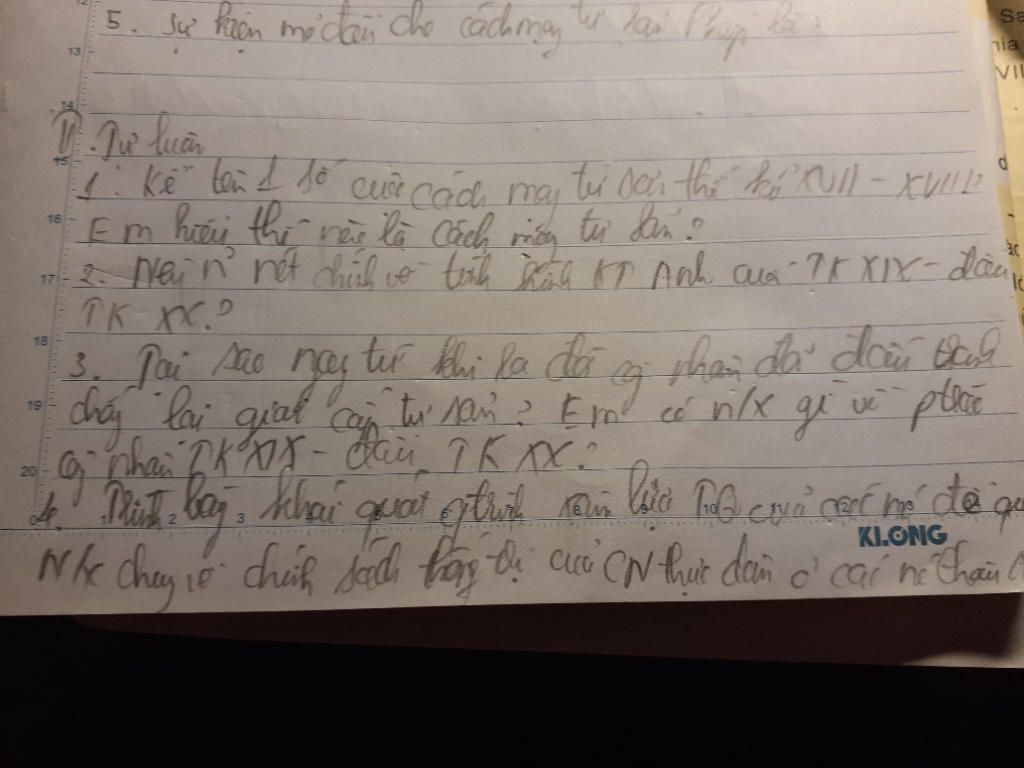 5. Sự kiện mở đầu cho cách mạng tư sản Pháp là:
II. Tự luận
1. Kể tên 1 số cuộc cách mạng tư sản thế kỉ XVII - XVIII?
Em hiểu thế nào là cách mạng tư sản?
2. Nêu n~ nét chính về tình hình KT Anh cuối TK XIX - đầu
TK XX?
3. Tại sao ngay từ khi ra đời gc nhân đã đấu tranh
chống lại giai cấp tư sản? Em có n/x gì về ptrào
gc nhân TK XIX - đầu TK XX?
4. Trình bày khái quát qtrình xâm lược TQ của các nc đế qu
N/x chung về chính sách thống trị của CN thực dân ở các nc
KLONG
Sa
VII